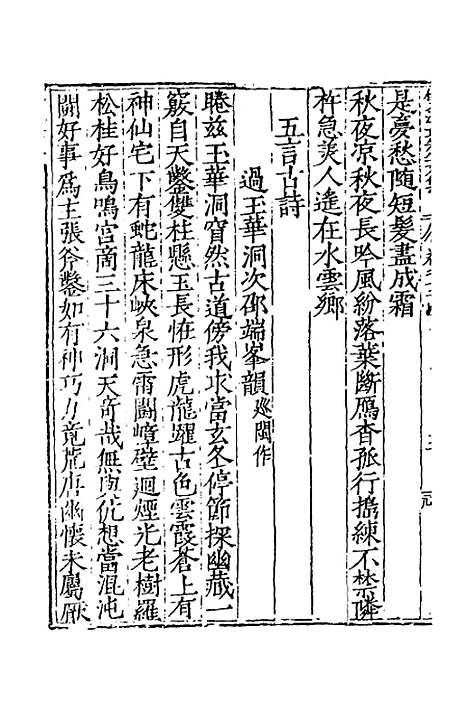 是憂愁隨短髮盡成霜
秋夜凉秋夜長吟風紛落葉斷鴈杳孤行擣練不禁隣
杵急美人遙在水雲鄉
五言古詩
過玉華洞次邵端峯韻巡閩作
睠兹玉華洞窅然古道傍我求當玄冬停節探幽藏一
竅自天鑿雙柱懸玉長恠形虎龍躍古色雲霞蒼上有
神仙宅下有蛇龍床峽泉急雷鬪嶂壁迴煙光老樹羅
松桂好鳥鳴宫商三十六洞天奇哉無與伉想當混沌
闢好事爲主張斧鑿如有神巧力竟荒唐幽懷未屬厭